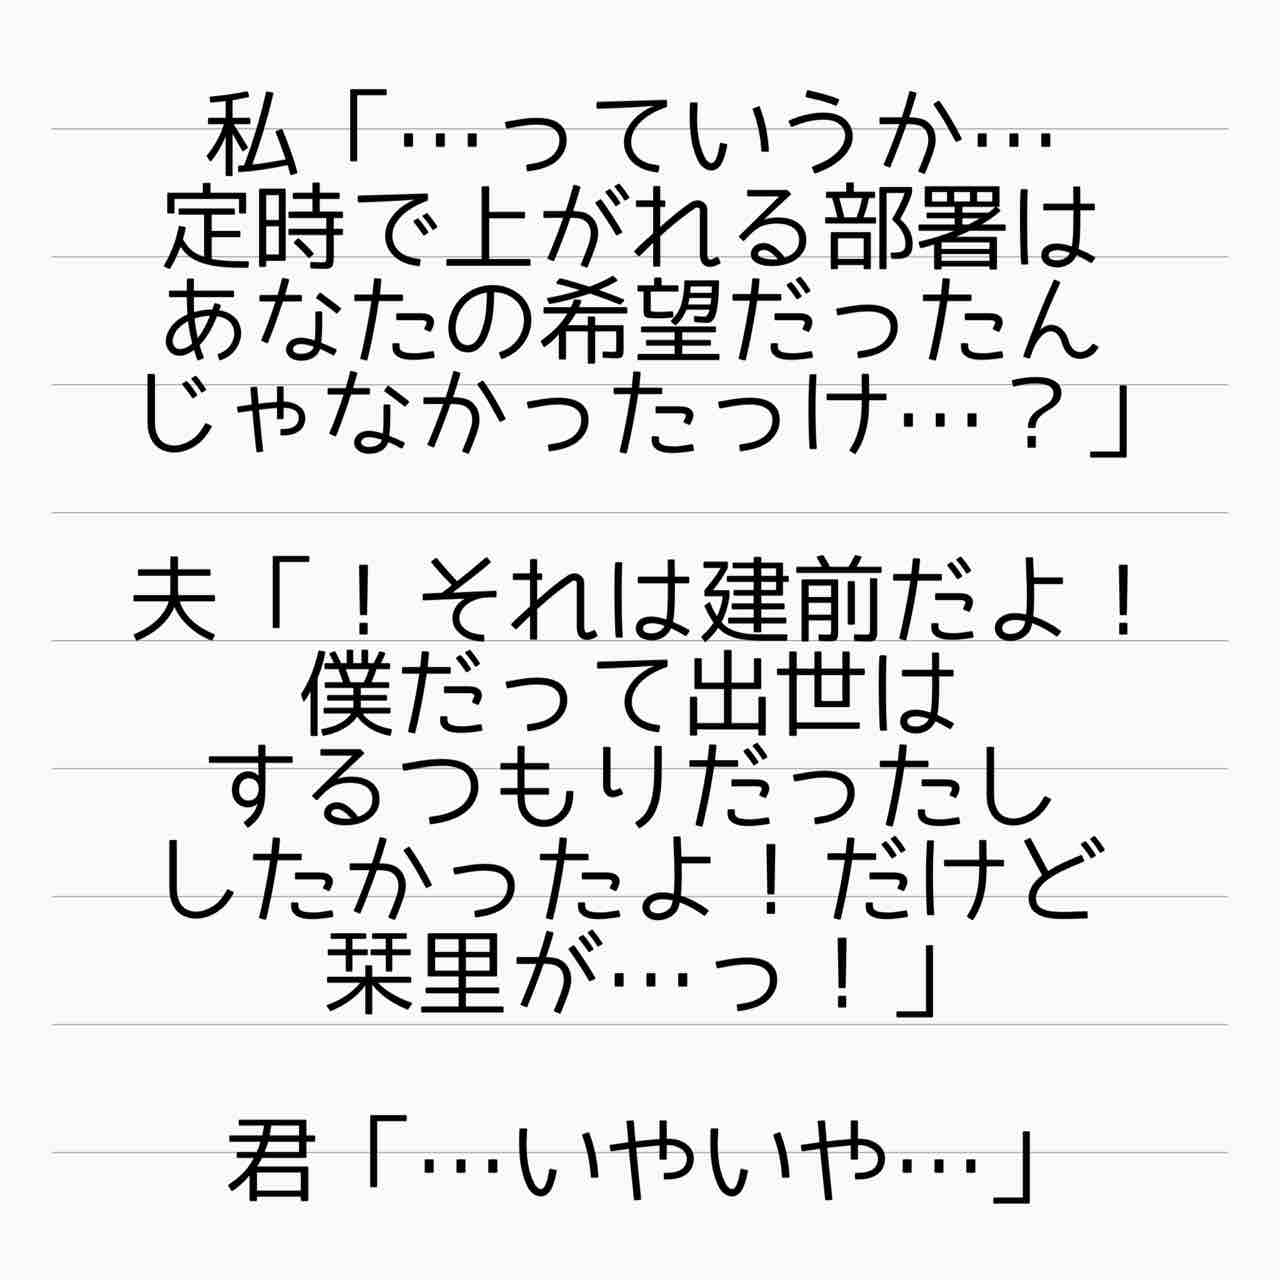 私「…っていうか…
定時で上がれる部署は
あなたの希望だったん
じゃなかったっけ…？」
夫「！それは建前だよ！
僕だって出世は
するつもりだったし
したかったよ！だけど
栞里が…っ！」
君「…いやいや…」